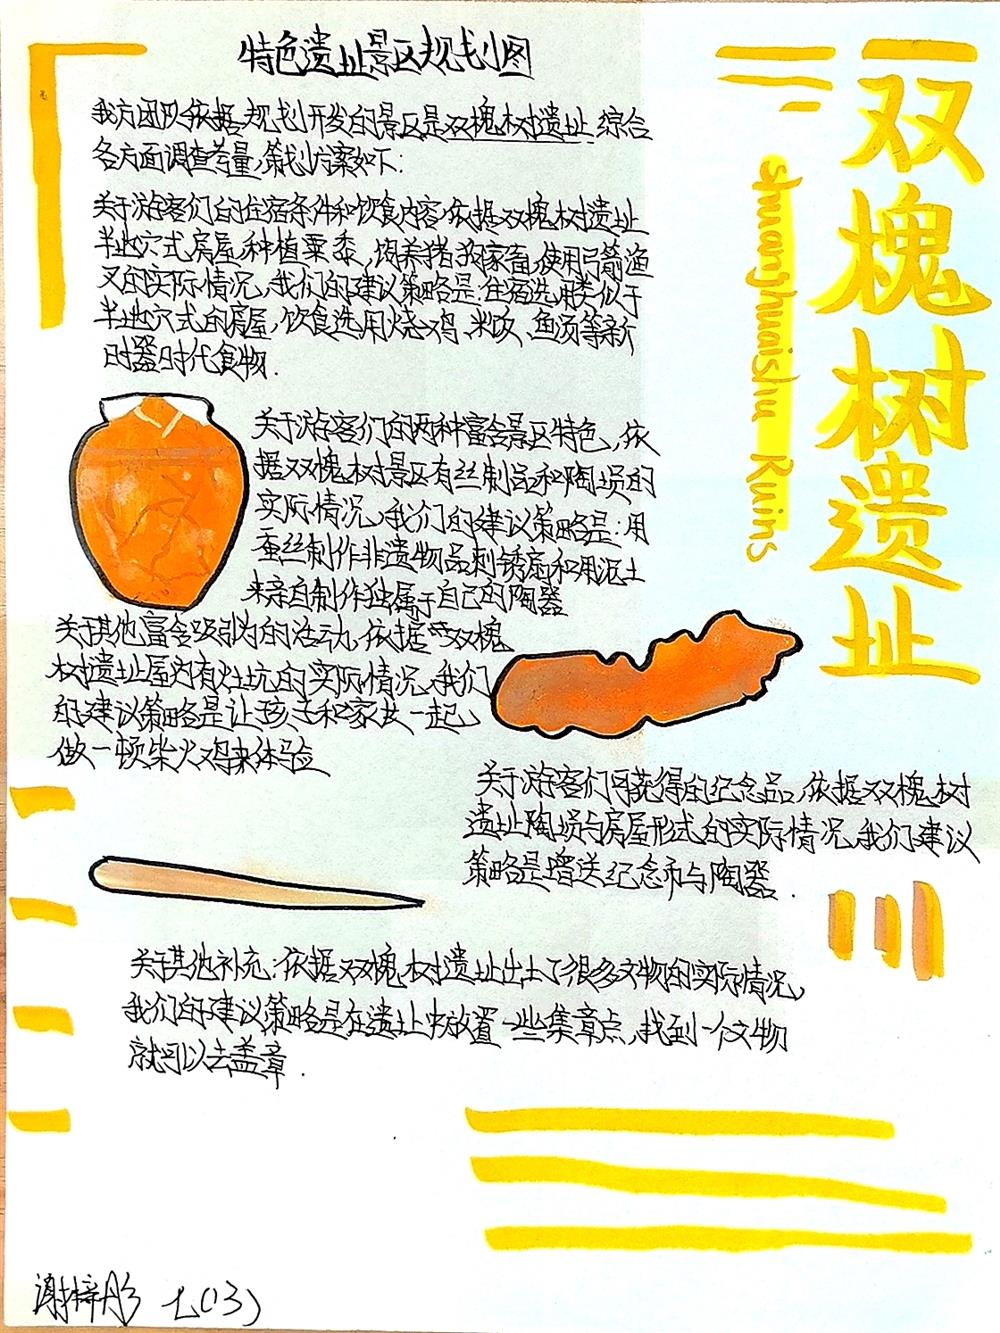 特色遗址景区规划图
我方团队依据规划开发的景区是双槐树遗址 综合
各方面调查考量,策划方案如下:
关于游客们的住宿条件和饮食内容,依据双槐树遗址
半地穴式房屋,种植粟黍,饲养猪狗家畜,使用弓箭渔
叉的实际情况,我们的建议策略是:住宿选用类似于
半地穴式的房屋,饮食选用烧鸡、米饭、鱼汤等新
石器时代食物.
关于游客们的两种富含景区特色,依
据双槐树景区有丝制品和陶埙的
实际情况,我们的建议策略是:用
蚕丝制作非遗物品刺绣扇和用泥土
来亲自制作独属于自己的陶器
关于其他富含吸引力的活动,依据双槐
树遗址屋内有灶坑的实际情况,我们
的建议策略是让孩子和家长一起,
做一顿柴火鸡来体验
关于游客们可获得的纪念品,依据双槐树
遗址陶埙与房屋形式的实际情况,我们建议
策略是赠送纪念币与陶器.
关于其他补充:依据双槐树遗址出土了很多文物的实际情况,
我们的建议策略是在遗址中放置一些集章点,找到一个文物
就可以去盖章.
双槐树遗址
shuanghuaishu Ruins
谢梓彤 七(13)